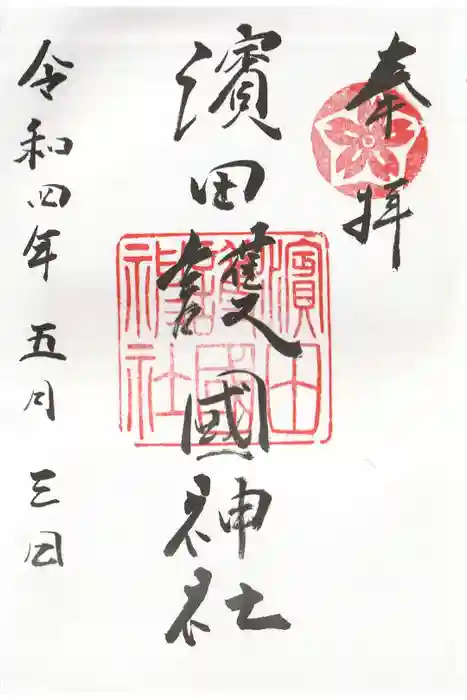 奉拝
濱田護國神社
濱田
護國
神社
令和四年五月三日